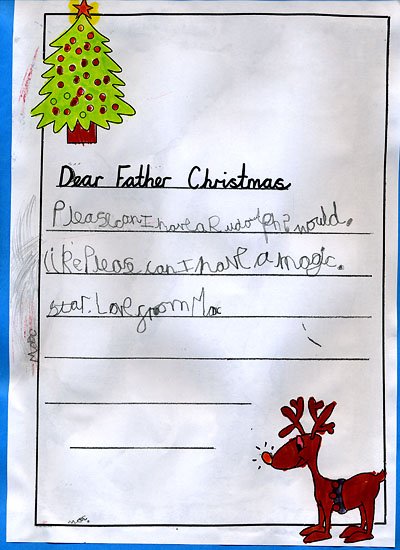 Dear Father Christmas
Please can I have a Rudolph? would.
like Please can I have a magic.
star. Love from Max